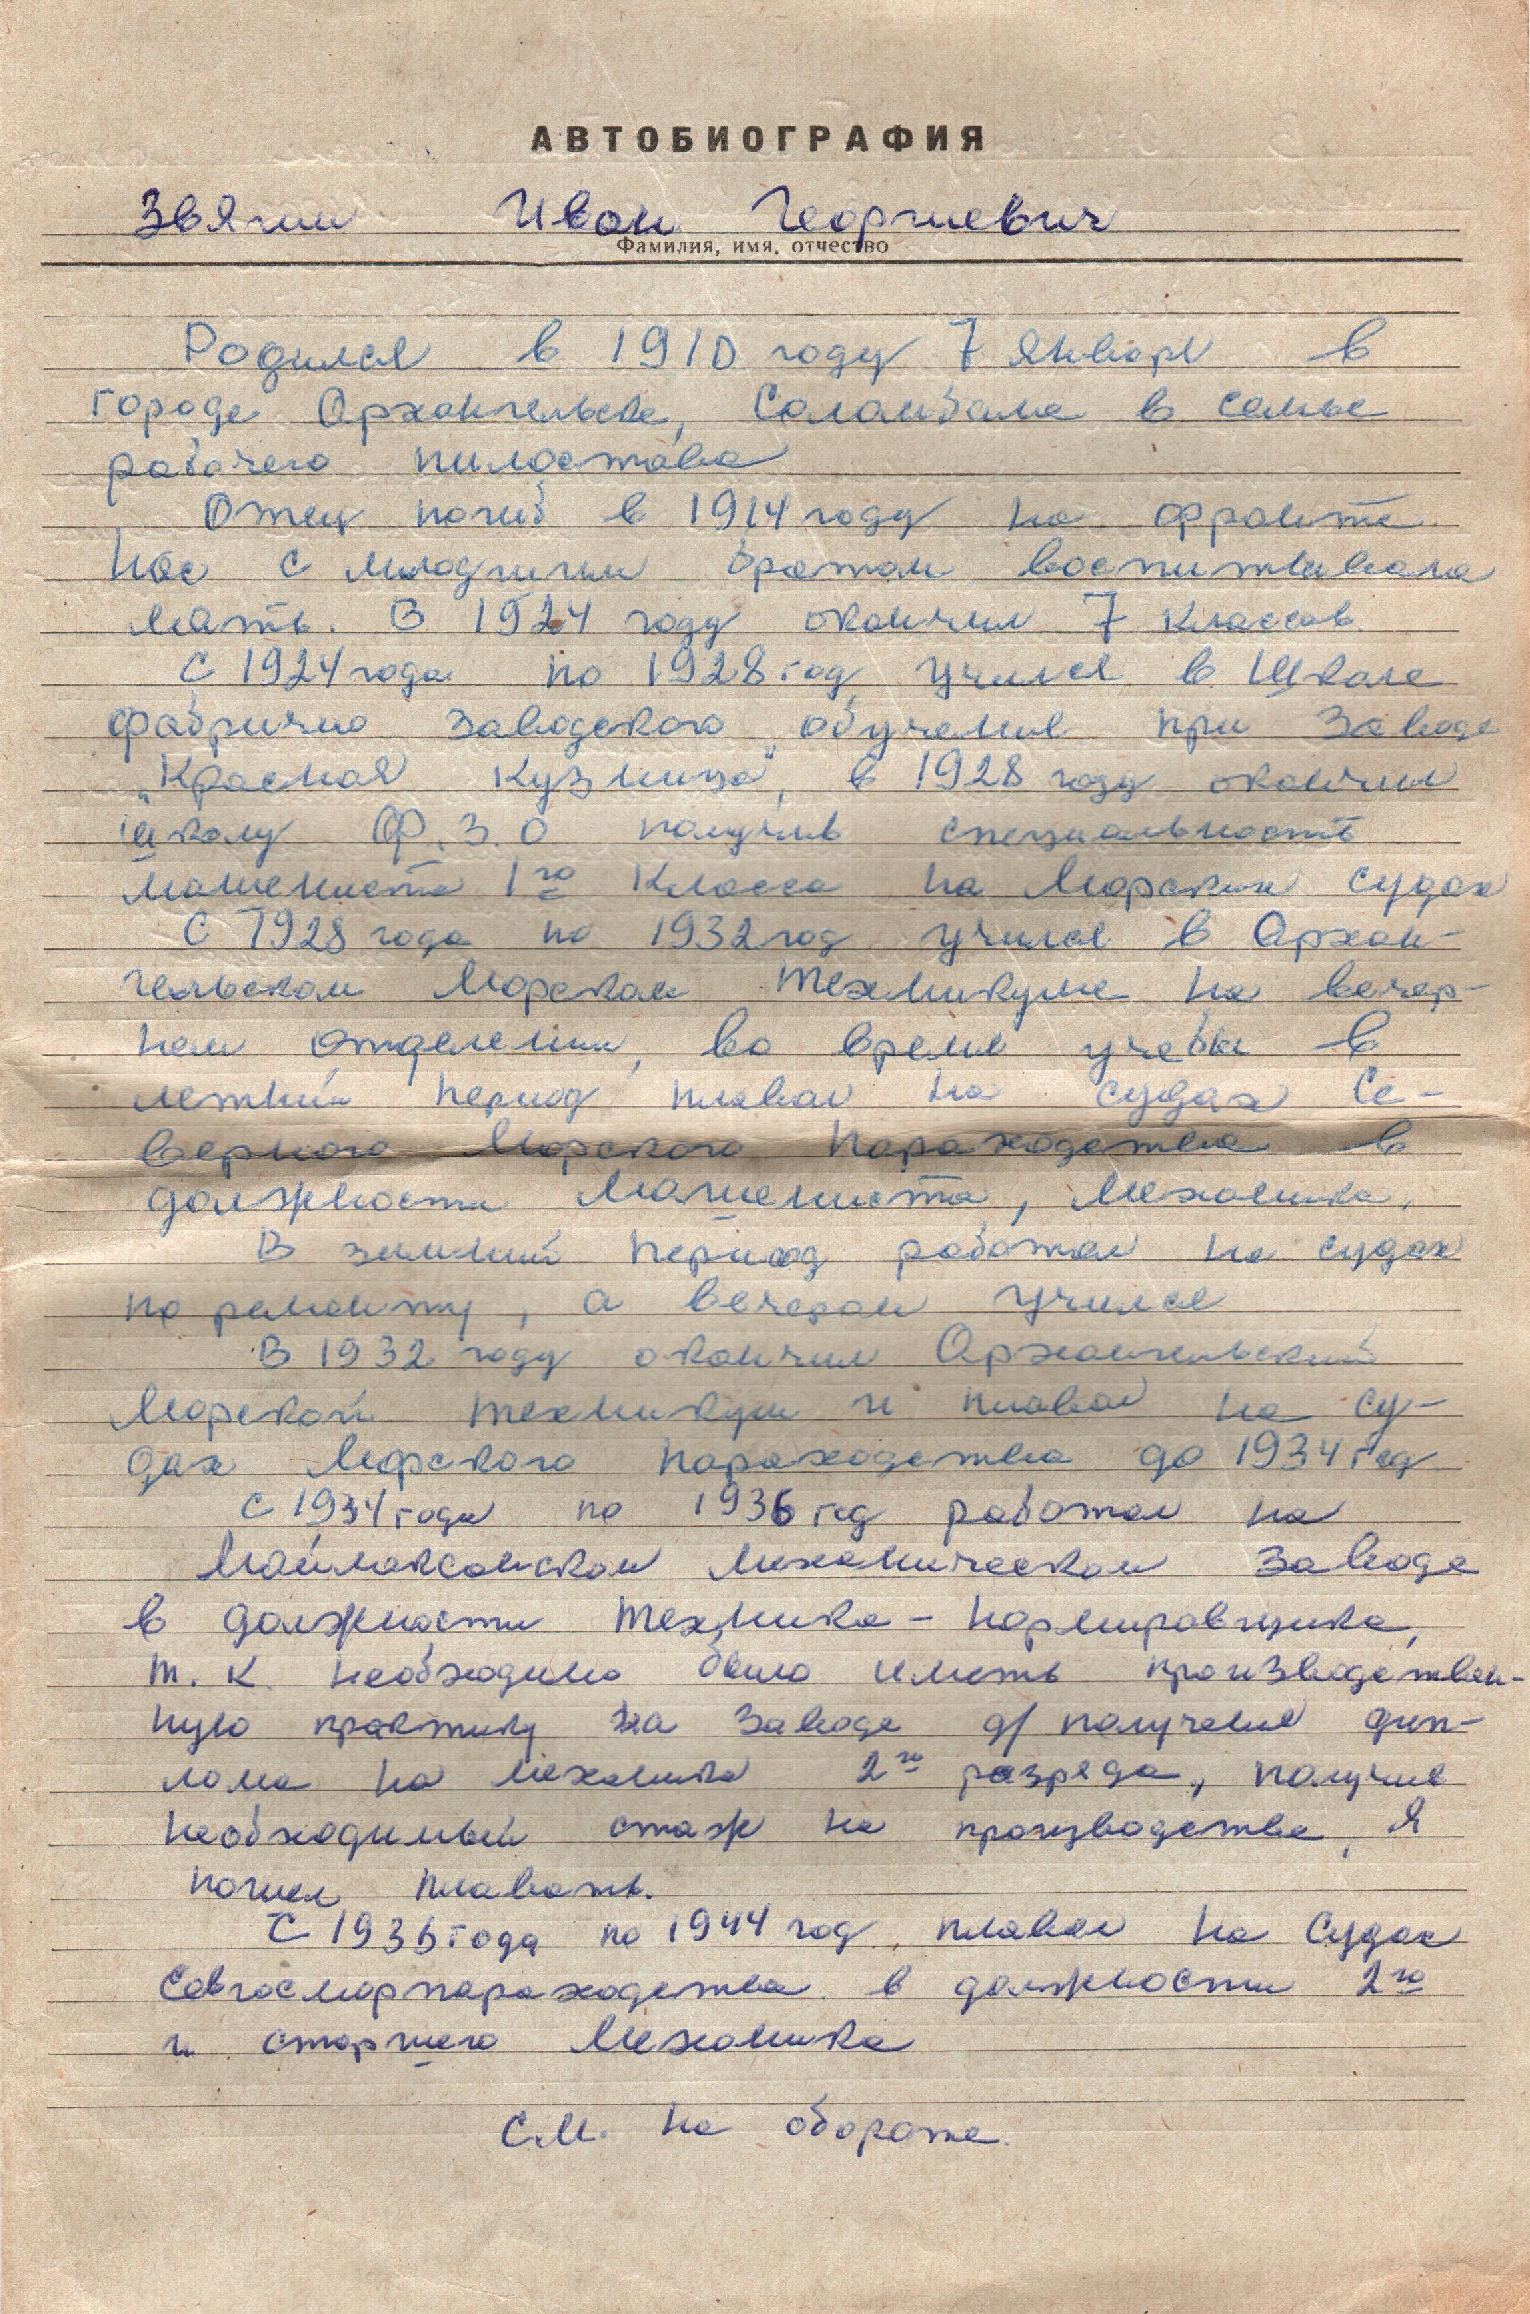 АВТОБИОГРАФИЯ
Звягин Иван Георгиевич
Фамилия, имя, отчество
Родился в 1910 году 7 января в
городе Архангельске, Соломбала в семье
рабочего пилостава
Отец погиб в 1914 году на фронте.
Нас с младшим братом воспитывала
мать. В 1924 году окончил 7 классов.
С 1924 года по 1928 год учился в Школе
фабрично заводского обучения при заводе
„Красная Кузница", в 1928 году окончил
школу Ф.З.О получив специальность
машениста 1го класса на морских судах
С 1928 года по 1932 год учился в Архан-
гельском Морском Техникуме на вечер-
нем отделении, во время учебы в
летний период плавал на судах Се-
верного Морского Пароходства в
должности машениста, механика.
В зимний период работал на судах
по ремонту, а вечером учился
В 1932 году окончил Архангельский
Морской техникум и плавал на су-
дах Морского пароходства до 1934 год
С 1934 года по 1936 год работал на
Маймаксанском механическом заводе
в должности техника-нормировщика,
т.к. необходимо было иметь производствен-
ную практику на заводе д/получения дип-
лома на механика 2го разряда, получив
необходимый стаж на производстве, я
пошел плавать.
С 1936 года по 1944 год плавал на судах
Севгосморпароходства в должности 2го
и старшего механика
С.М. на обороте.